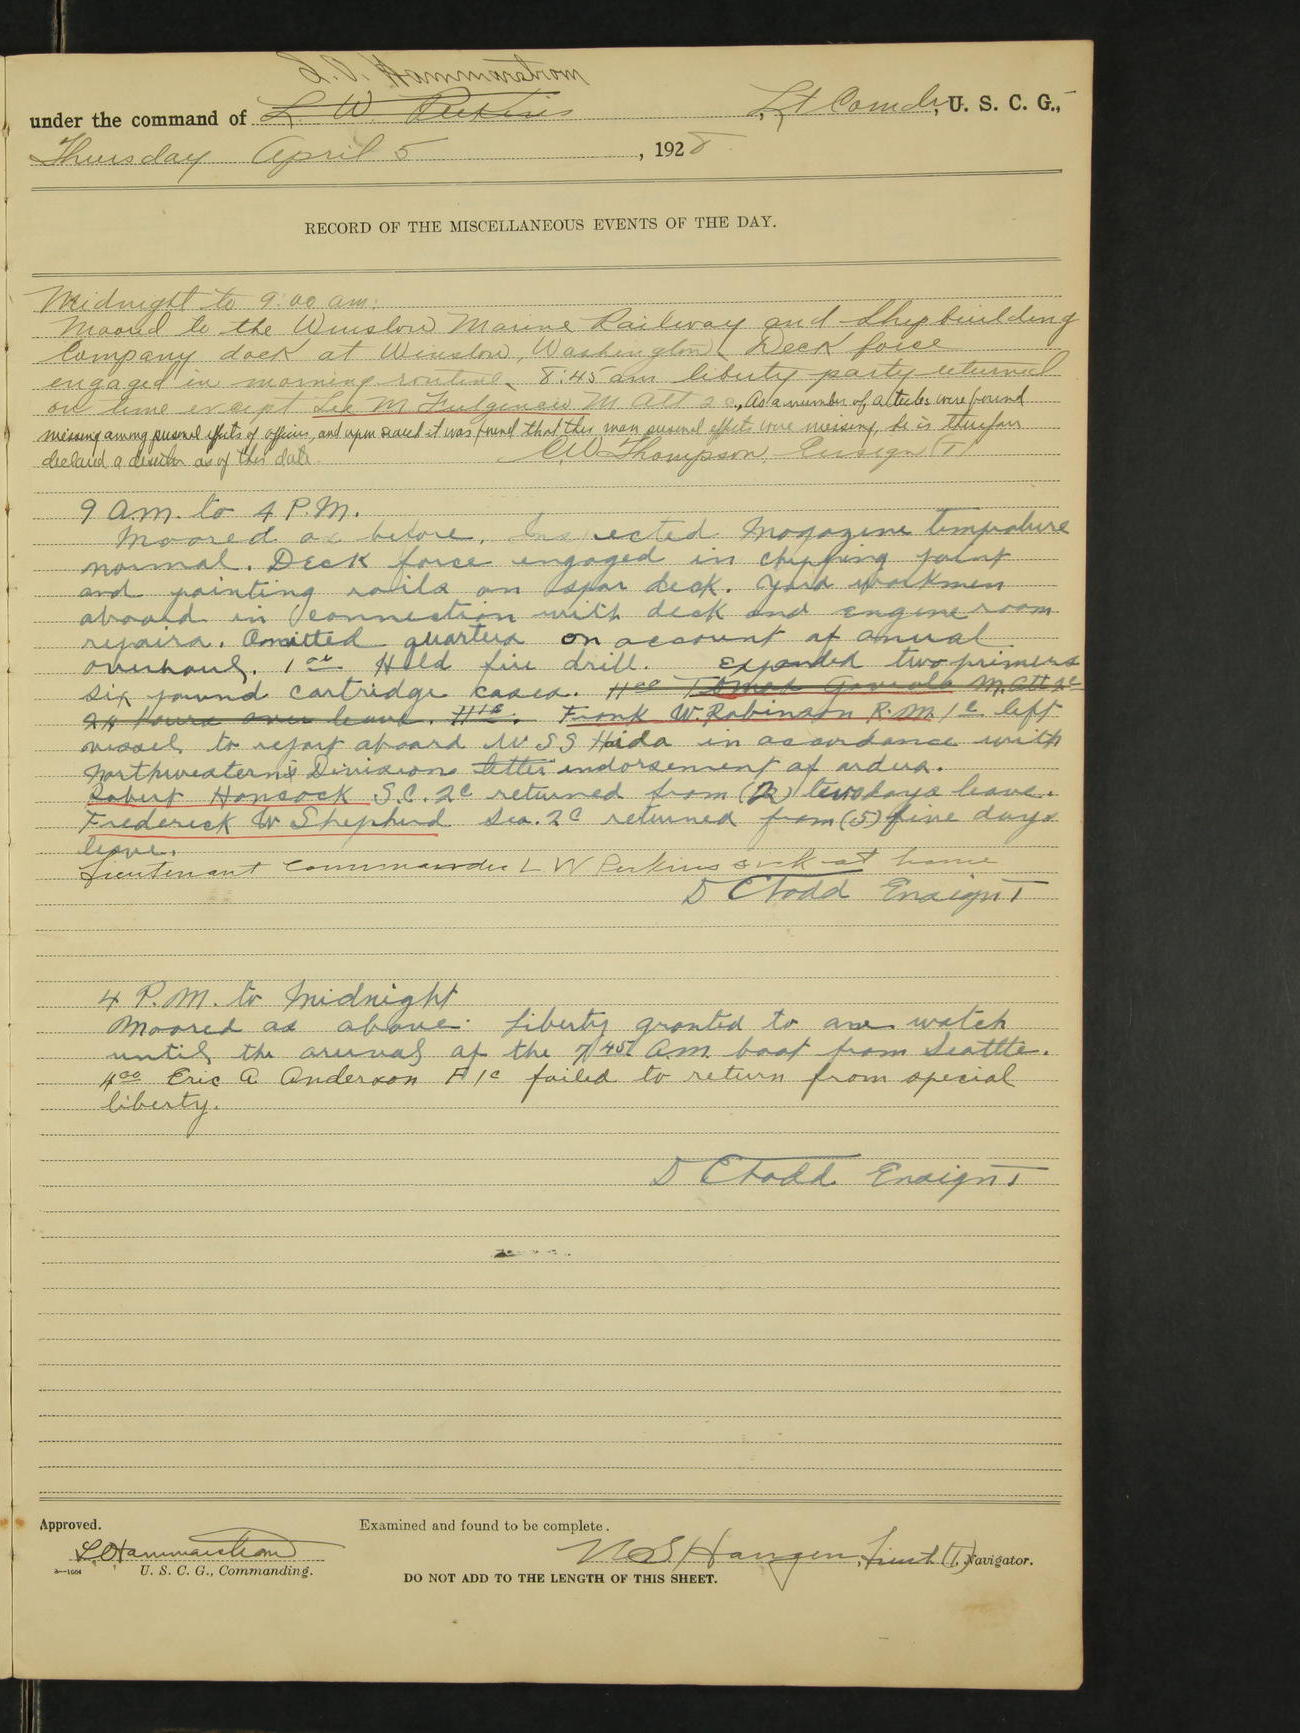 L. O. Hammarstrom
under the command of L W Perkins Lt Comdr, U. S. C. G.,
Thursday April 5, 1928
RECORD OF THE MISCELLANEOUS EVENTS OF THE DAY.
Midnight to 9:00 am:
Moored to the Winslow Marine Railway and Shipbuilding
Company dock at Winslow, Washington. Deck force
engaged in morning routine. 8:45 am liberty party returned
on time except M Fulgencio M Att 2c, As a number of articles were found
missing among personel effects of officers, and upon search it was found that this man personel effects were missing, he is therefore
declared a deserter as of this date. C.W. Thompson, Ensign (T)
9 A.M. to 4 P.M.
Moored as before. Inspected Magazine tempature
normal. Deck force engaged in chipping paint
and painting rails on spar deck. Yard workmen
aboard in connection with deck and engine room
repairs. Omitted quarters on account of anual
overhaul. Held fire drill. Expended two primers
six pound cartridge cases. 11 00 M. Att 2c
24 hours over leave. 11 15. Frank W. Robinson R.M. 1c left
vessel to report aboard USS Haida in accordance with
Northwestern's Divisions letter endorsement of orders.
Robert Hancock S.C. 2c returned from (2) two days leave.
Frederick W Shepherd Sea. 2c returned from (5) five days
leave.
Lieutenant Commander L W Perkins sick at home
D C Todd Ensign T
4 P.M. to Midnight
Moored as above. Liberty granted to one watch
until the arrival of the 7 45 A.M. boat from Seattle.
4 00 Eric A Anderson F 1c failed to return from special
liberty.
D C Todd Ensign T
Approved. Examined and found to be complete.
L O Hammarstrom N S Haugen, Lieut. (T), Navigator.
U. S. C. G., Commanding.
DO NOT ADD TO THE LENGTH OF THIS SHEET.